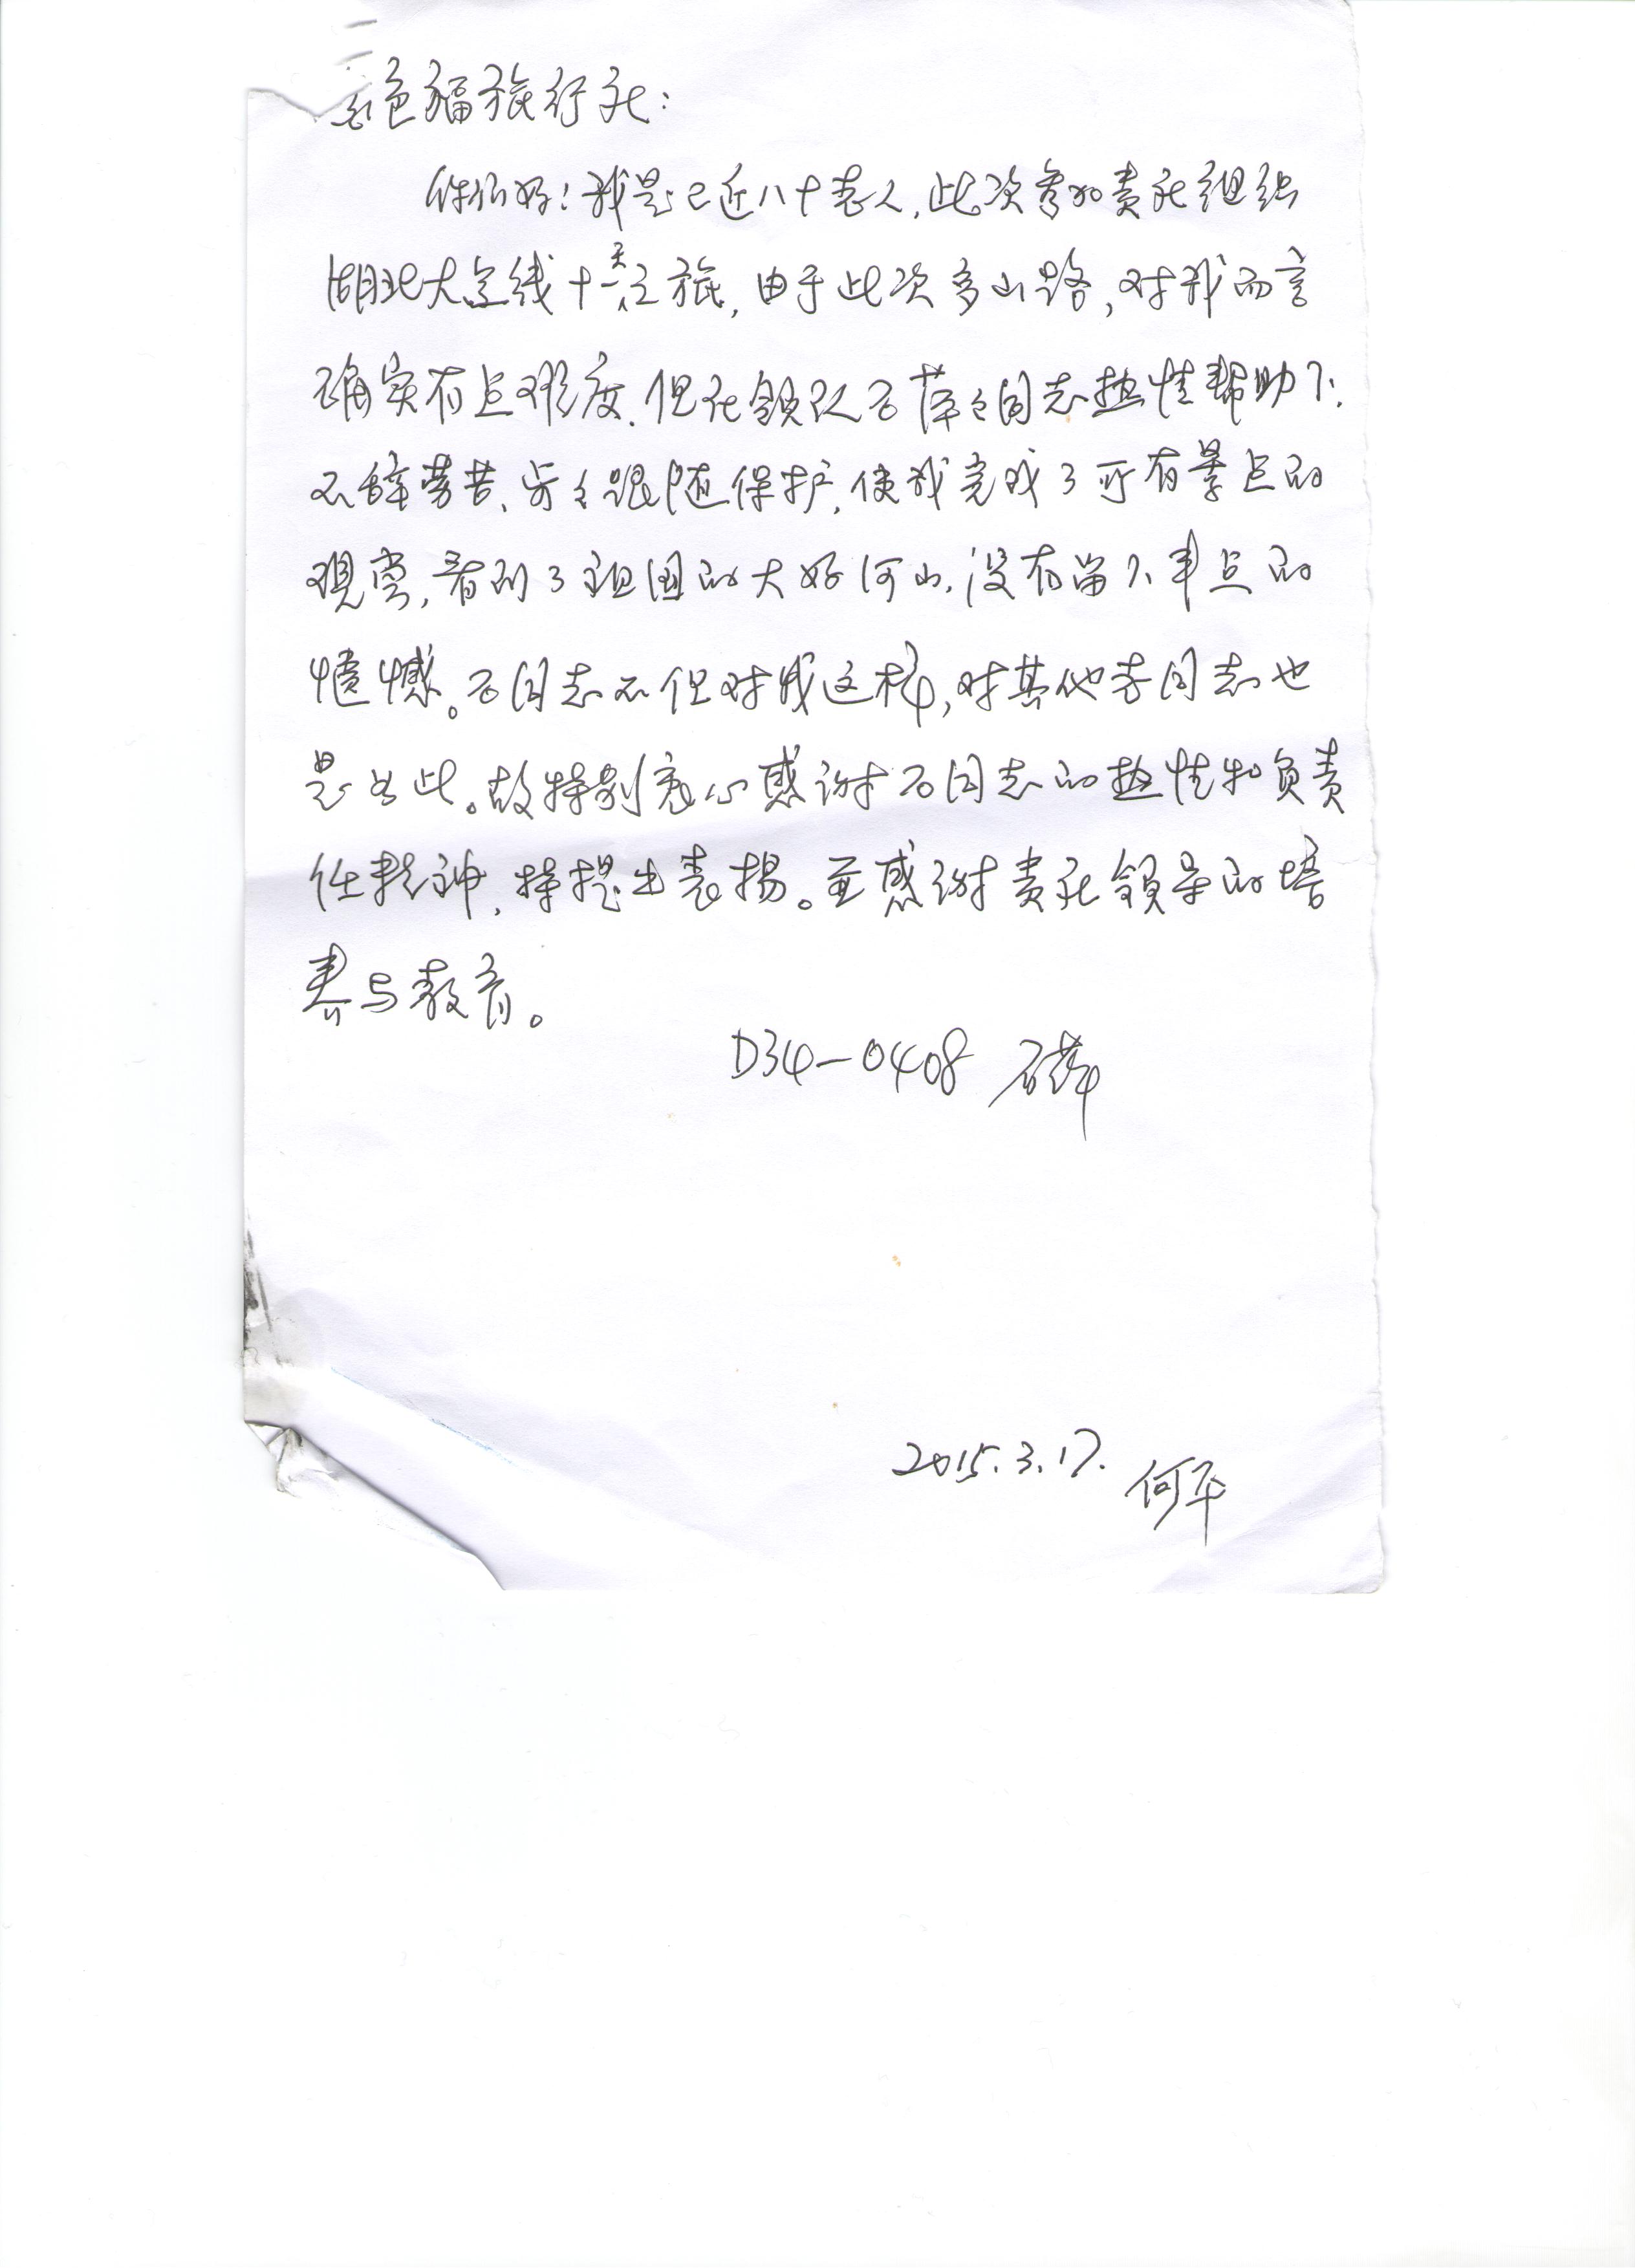 色福旅行社：
你们好！我是已近八十老人，此次参加贵社组织
湖北大全线十一天之旅，由于此次多山路，对我而言
确实有点难度．但在领队石萍萍同志热情帮助下．
不辞劳苦、步步跟随保护，使我完成了所有景点的
观赏，看到了祖国的大好河山，没有留下半点的
遗憾。石同志不但对我这样，对其他老同志也
是如此。故特别衷心感谢石同志的热情和负责
任精神，特提出表扬。并感谢贵社领导的培
养与教育。
D34-0408 石萍
2015.3.17. 何平